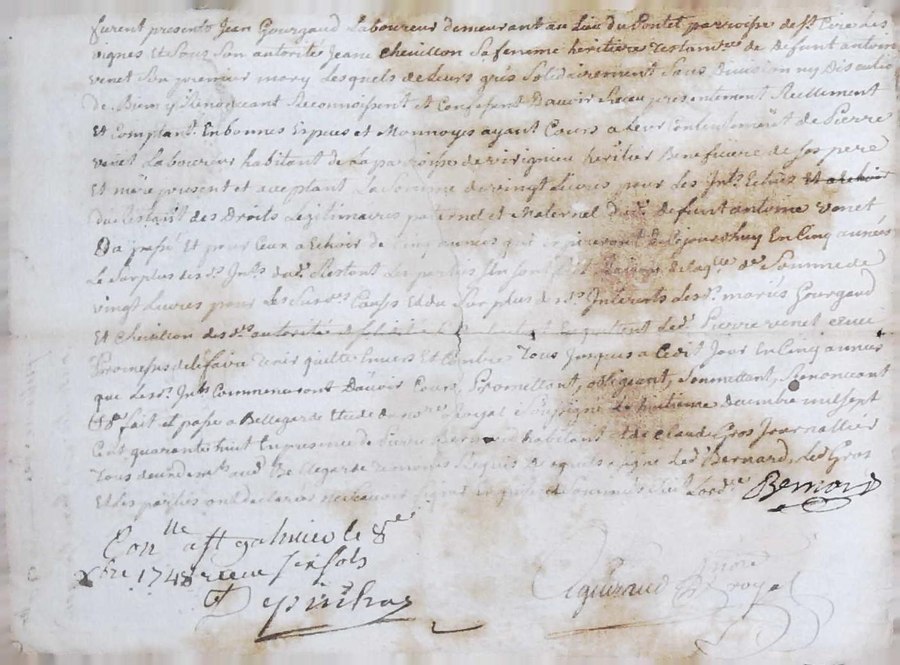 furent presents Jean Gourgaud Laboureur demeurant au Lieu du Pontet parroisse de St Cire Les
vignes et sous son autorité Jeane Cheuillon Sa femme heritiere Testamre de defunt antoine
venet Son premier mary Lesquels de Leurs grés Solidairement Sans Division ny Discution
de Biens y Renonceant Reconnoissent et Confessent D'avoir Receu presentement Reellement
Et Comptant En bonnes Especes et Monnoyes ayant Cours a Leur Contentement de Pierre
venet Laboureur habitent de La parroisse de virignieu heritier Beneficiere de Ses pere
Et mere present et aceptant La Somme de vingt Livres pour Les Intts Echus et a echoir
du Restant des Droits Legitimaires paternel et Maternel dud. defunt antoine venet
Du passé Et pour Ceux a Echoir de Cinq années qui expireront de Ce jourd'huy En Cinq années
Le Surplus desd. Intts Les parties de Somme de
vingt Livres pour Les Susdes Causes Et du Surplus desd. Interets Lesd. mariés Gourgaud
Et Cheuillon desd. autorités Led. Pierre venet avec
Promesses de Le faire Tenir quitte Envers Et Contre Tous Jusques a Cedit Jour En Cinq années
que Lesd. Intts Commenceront D'avoir Cours, Promettant, obligeant, Soumettant, Renonceant
fait et passé a Bellegarde Etude du nore Royal Soussigné Le huitieme decembre mil sept
Cent quarante huit En presence de Pierre Bernard habitant et de Claude Gros Journallier
Tous deux aud. Bellegarde Temoins Requis Lesquels a signé Led. Bernard, Led. Gros
Et Les parties ont declaré ne Scavoir Signer de Ce
Bernard
Conlle a St galmier le 8e
xbre 1748 receu six sols
nore Royal